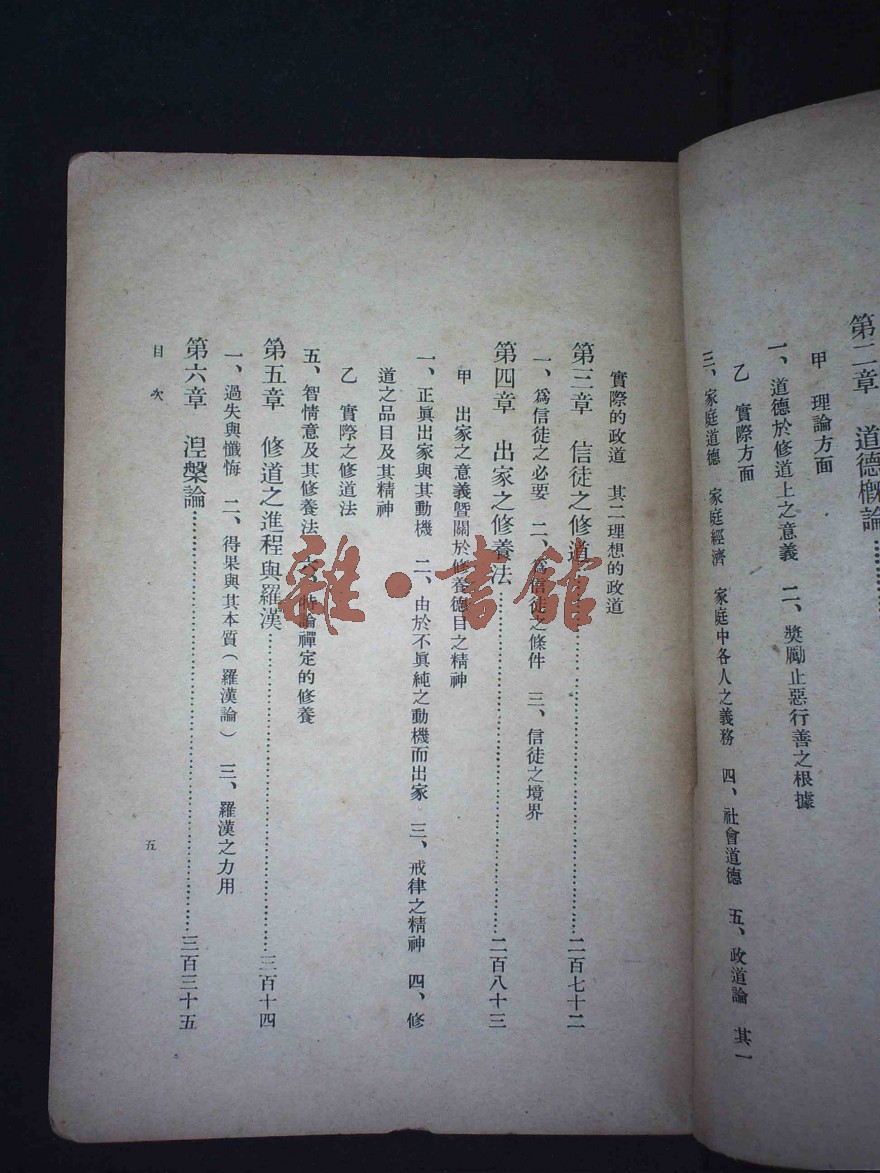 第二章　道德概論
甲　理論方面
一、道德於修道上之意義　二、獎勵止惡行善之根據
乙　實際方面
三、家庭道德　家庭經濟　家庭中各人之義務　四、社會道德　五、政道論　其一
實際的政道　其二理想的政道
第三章　信徒之修道……二百七十二
一、爲信徒之必要　二、爲信徒之條件　三、信徒之境界
第四章　出家之修養法……二百八十三
甲　出家之意義暨關於修養德目之精神
一、正眞出家與其動機　二、由於不眞純之動機而出家　三、戒律之精神　四、修
道之品目及其精神
乙　實際之修道法
五、智情意及其修養法　六、特論禪定的修養
第五章　修道之進程與羅漢……三百十四
一、過失與懺悔　二、得果與其本質（羅漢論）　三、羅漢之力用
第六章　湼槃論……三百三十五
目次
五
雜·書館